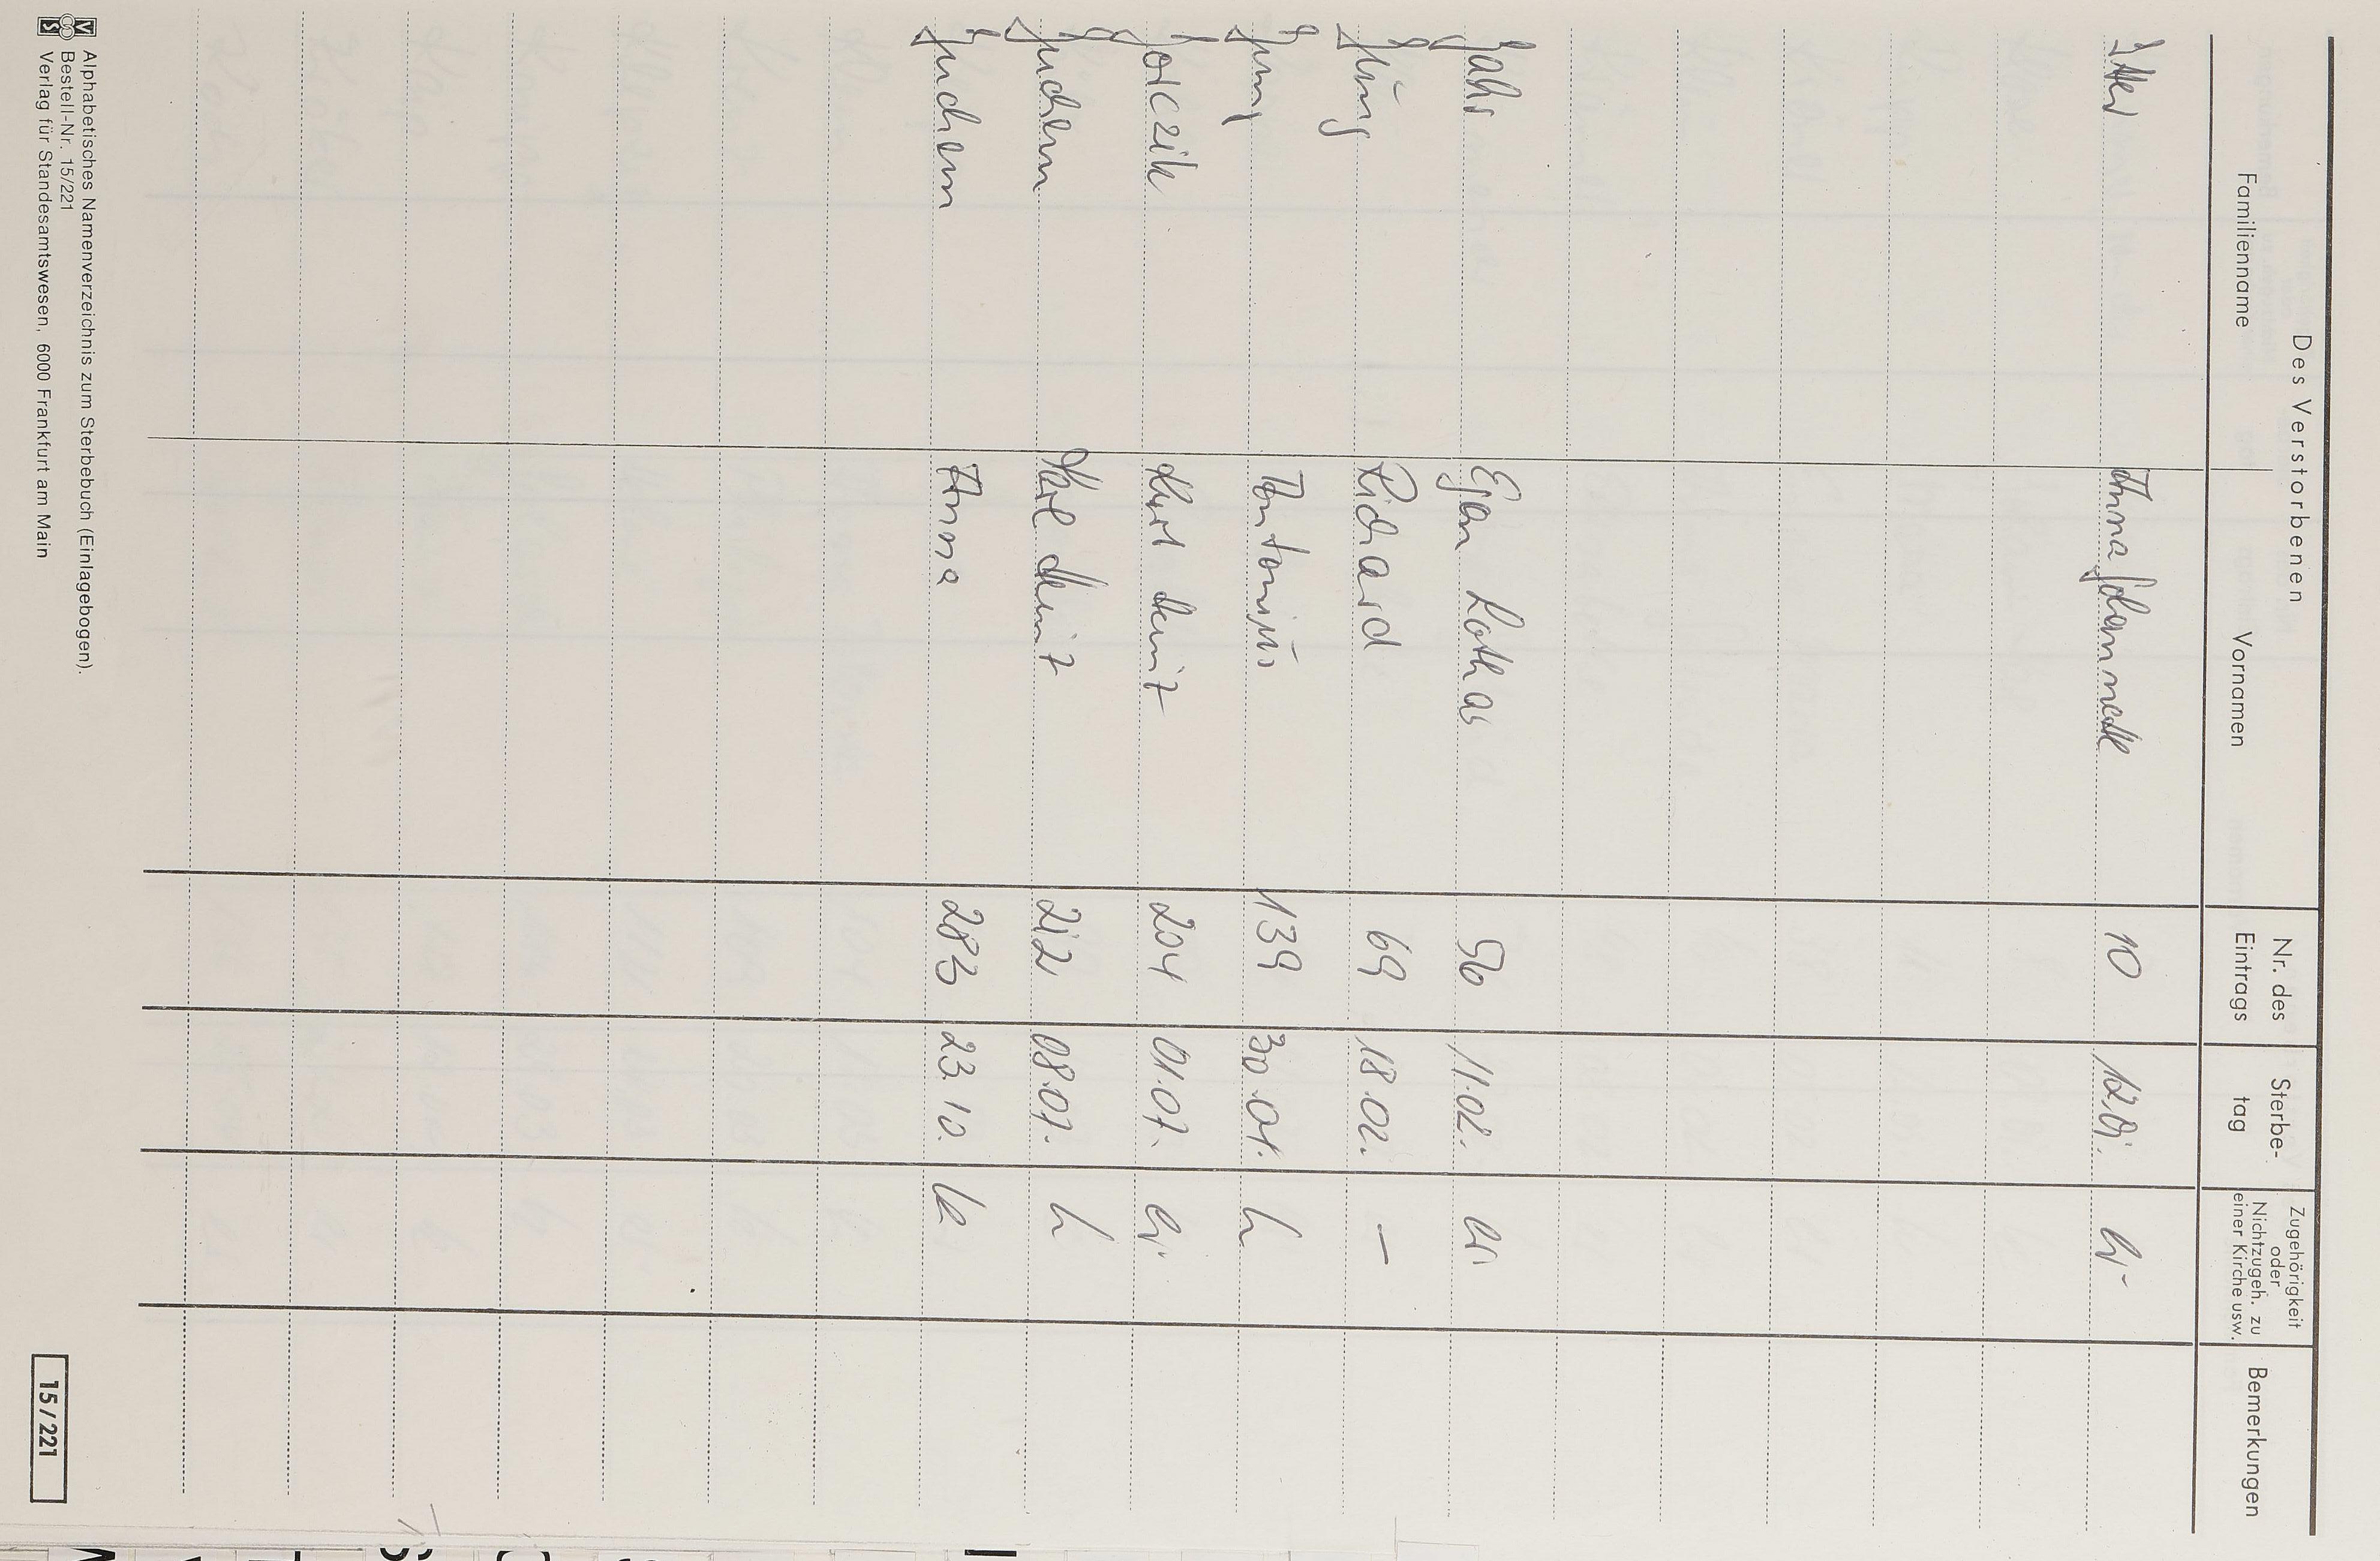 Des Verstorbenen
Familienname Vornamen
Nr. des Eintrags
Sterbe-tag
Zugehörigkeit oder Nichtzugeh. zu einer Kirche usw.
Bemerkungen
Itter Anna 10 12.01.
Jahr Egon Lothar 56 11.02.
Jung Richard 69 18.02. —
Jung 139 30.01.
Jorczik Kurt 204 01.07.
Juchem Karl Heinz 212 08.07.
Juchem Anna 283 23.10.
Alphabetisches Namenverzeichnis zum Sterbebuch (Einlagebogen).
Bestell-Nr. 15/221
Verlag für Standesamtswesen, 6000 Frankfurt am Main
15/221